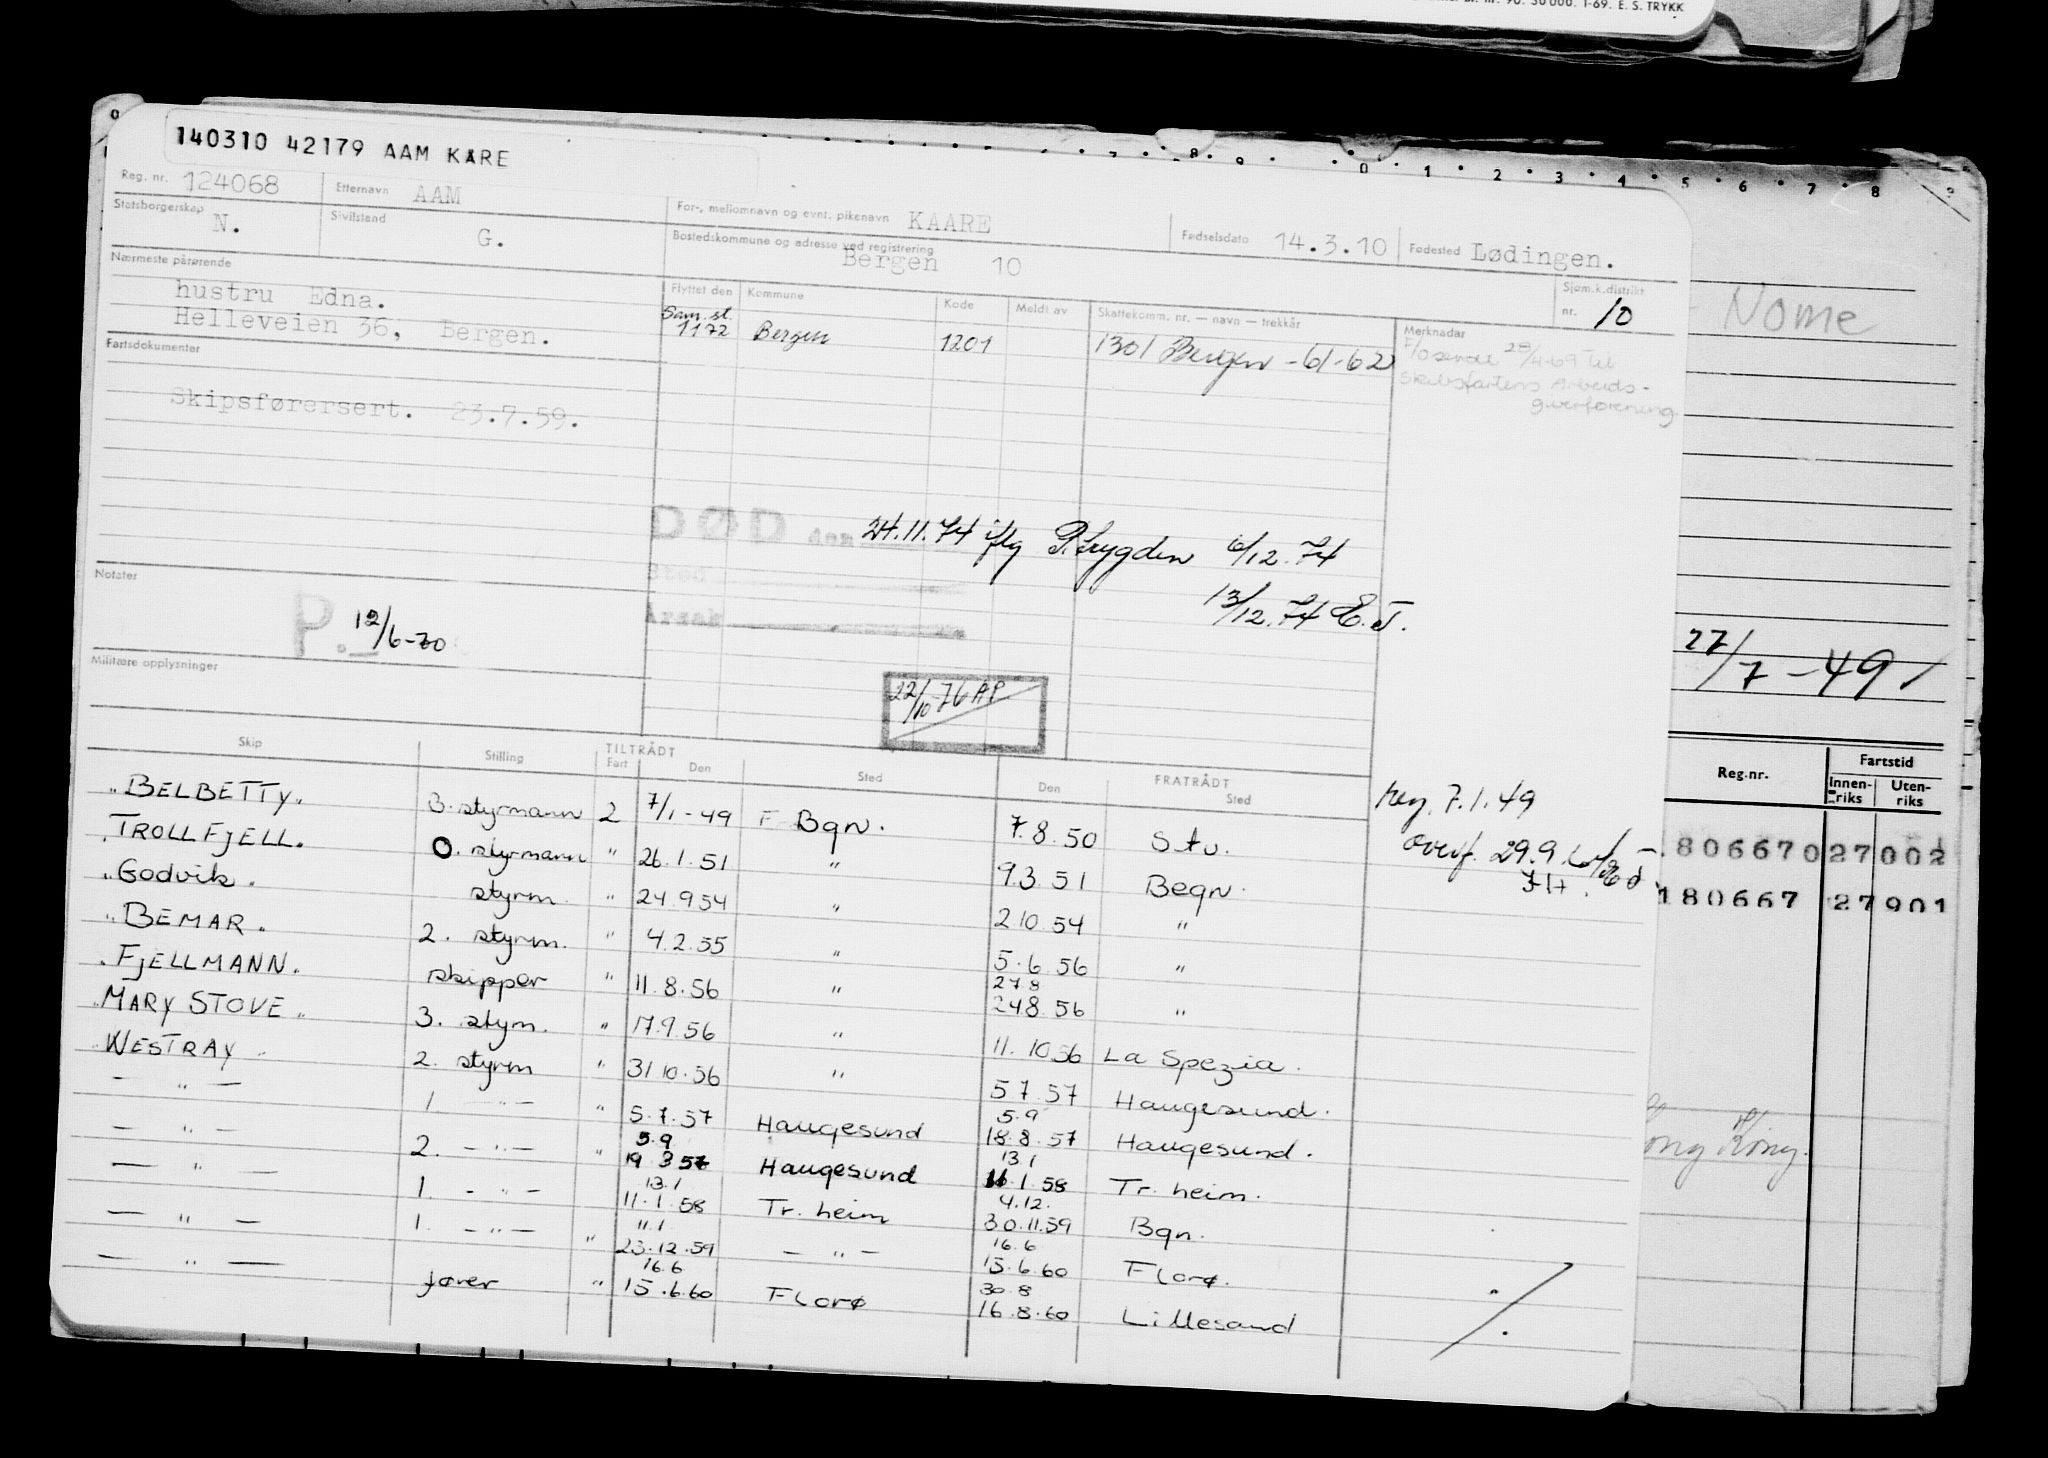 nr. 90. 30 000. 1-69. E. S. TRYKK
140310 42179 AAM KARE
Reg. nr. 124068 Etternavn AAM For-, mellomnavn og evnt. pikenavn KAARE Fødselsdato 14.3.10 Fødested Lødingen.
Statsborgerskap N. Sivilstand G. Bostedskommune og adresse ved registrering Bergen 10
Nærmeste pårørende
hustru Edna.
Helleveien 36, Bergen.
Flyttet den Kommune Kode Meldt av Skattekomm. nr. — navn — trekkår Sjøm.k.distrikt nr. 10
Sam. st.
1172 Bergen 1201 1301 Bergen -61-62
Merknader
28/4-69 til
Skibsfartens Arbeids-
giverforening
Fartsdokumenter
Skipsførersert. 23.7.59.
DØD den 24.11.74 iflg P.trygden 6/12.74
Sted
Årsak 13/12.74 E.T.
Notater
P. 12/6-70
Militære opplysninger
22/10-76 AP
Skip Stilling TILTRÅDT Fart Den Sted FRATRÅDT Den Sted
"BELBETTY" 3. styrmann 2 7/1-49 F Bgn. 7.8.50 Stv.
"TROLLFJELL. O. styrmann " 26.1.51 " 9.3.51 Begn.
"Godvik. styrm. " 24.9.54 " 2.10.54 "
"BEMAR. 2. styrm. " 4.2.55 " 5.6.56 "
"FJELLMANN. skipper " 11.8.56 " 27.8 24.8.56 "
"MARY STOVE" 3. stym. " 17.9.56 " 11.10.56 La Spezia.
"WESTRAY" 2. styrm " 31.10.56 " 5.7.57 Haugesund.
— " — 1. — " — " 5.7.57 Haugesund 5.9 18.8.57 Haugesund.
— " — 2. — " — " 5.9 19.8.57 Haugesund 13.1 11.1.58 Tr. heim.
— " — 1. — " — 13.1 11.1.58 Tr. heim 4.12. 30.11.59 Bgn.
— " — 1. — " — " 11.1 23.12.59 — " — 16.6 15.6.60 Florø.
— " — fører " 16.6 15.6.60 Florø 30.8 16.8.60 Lillesand
Reg. 7.1.49
Overf. 29.9.
Nome
27/7-49
Reg.nr. Fartstid
Innen-riks Uten-riks
180667 027002
180667 27901
Hong Kong.